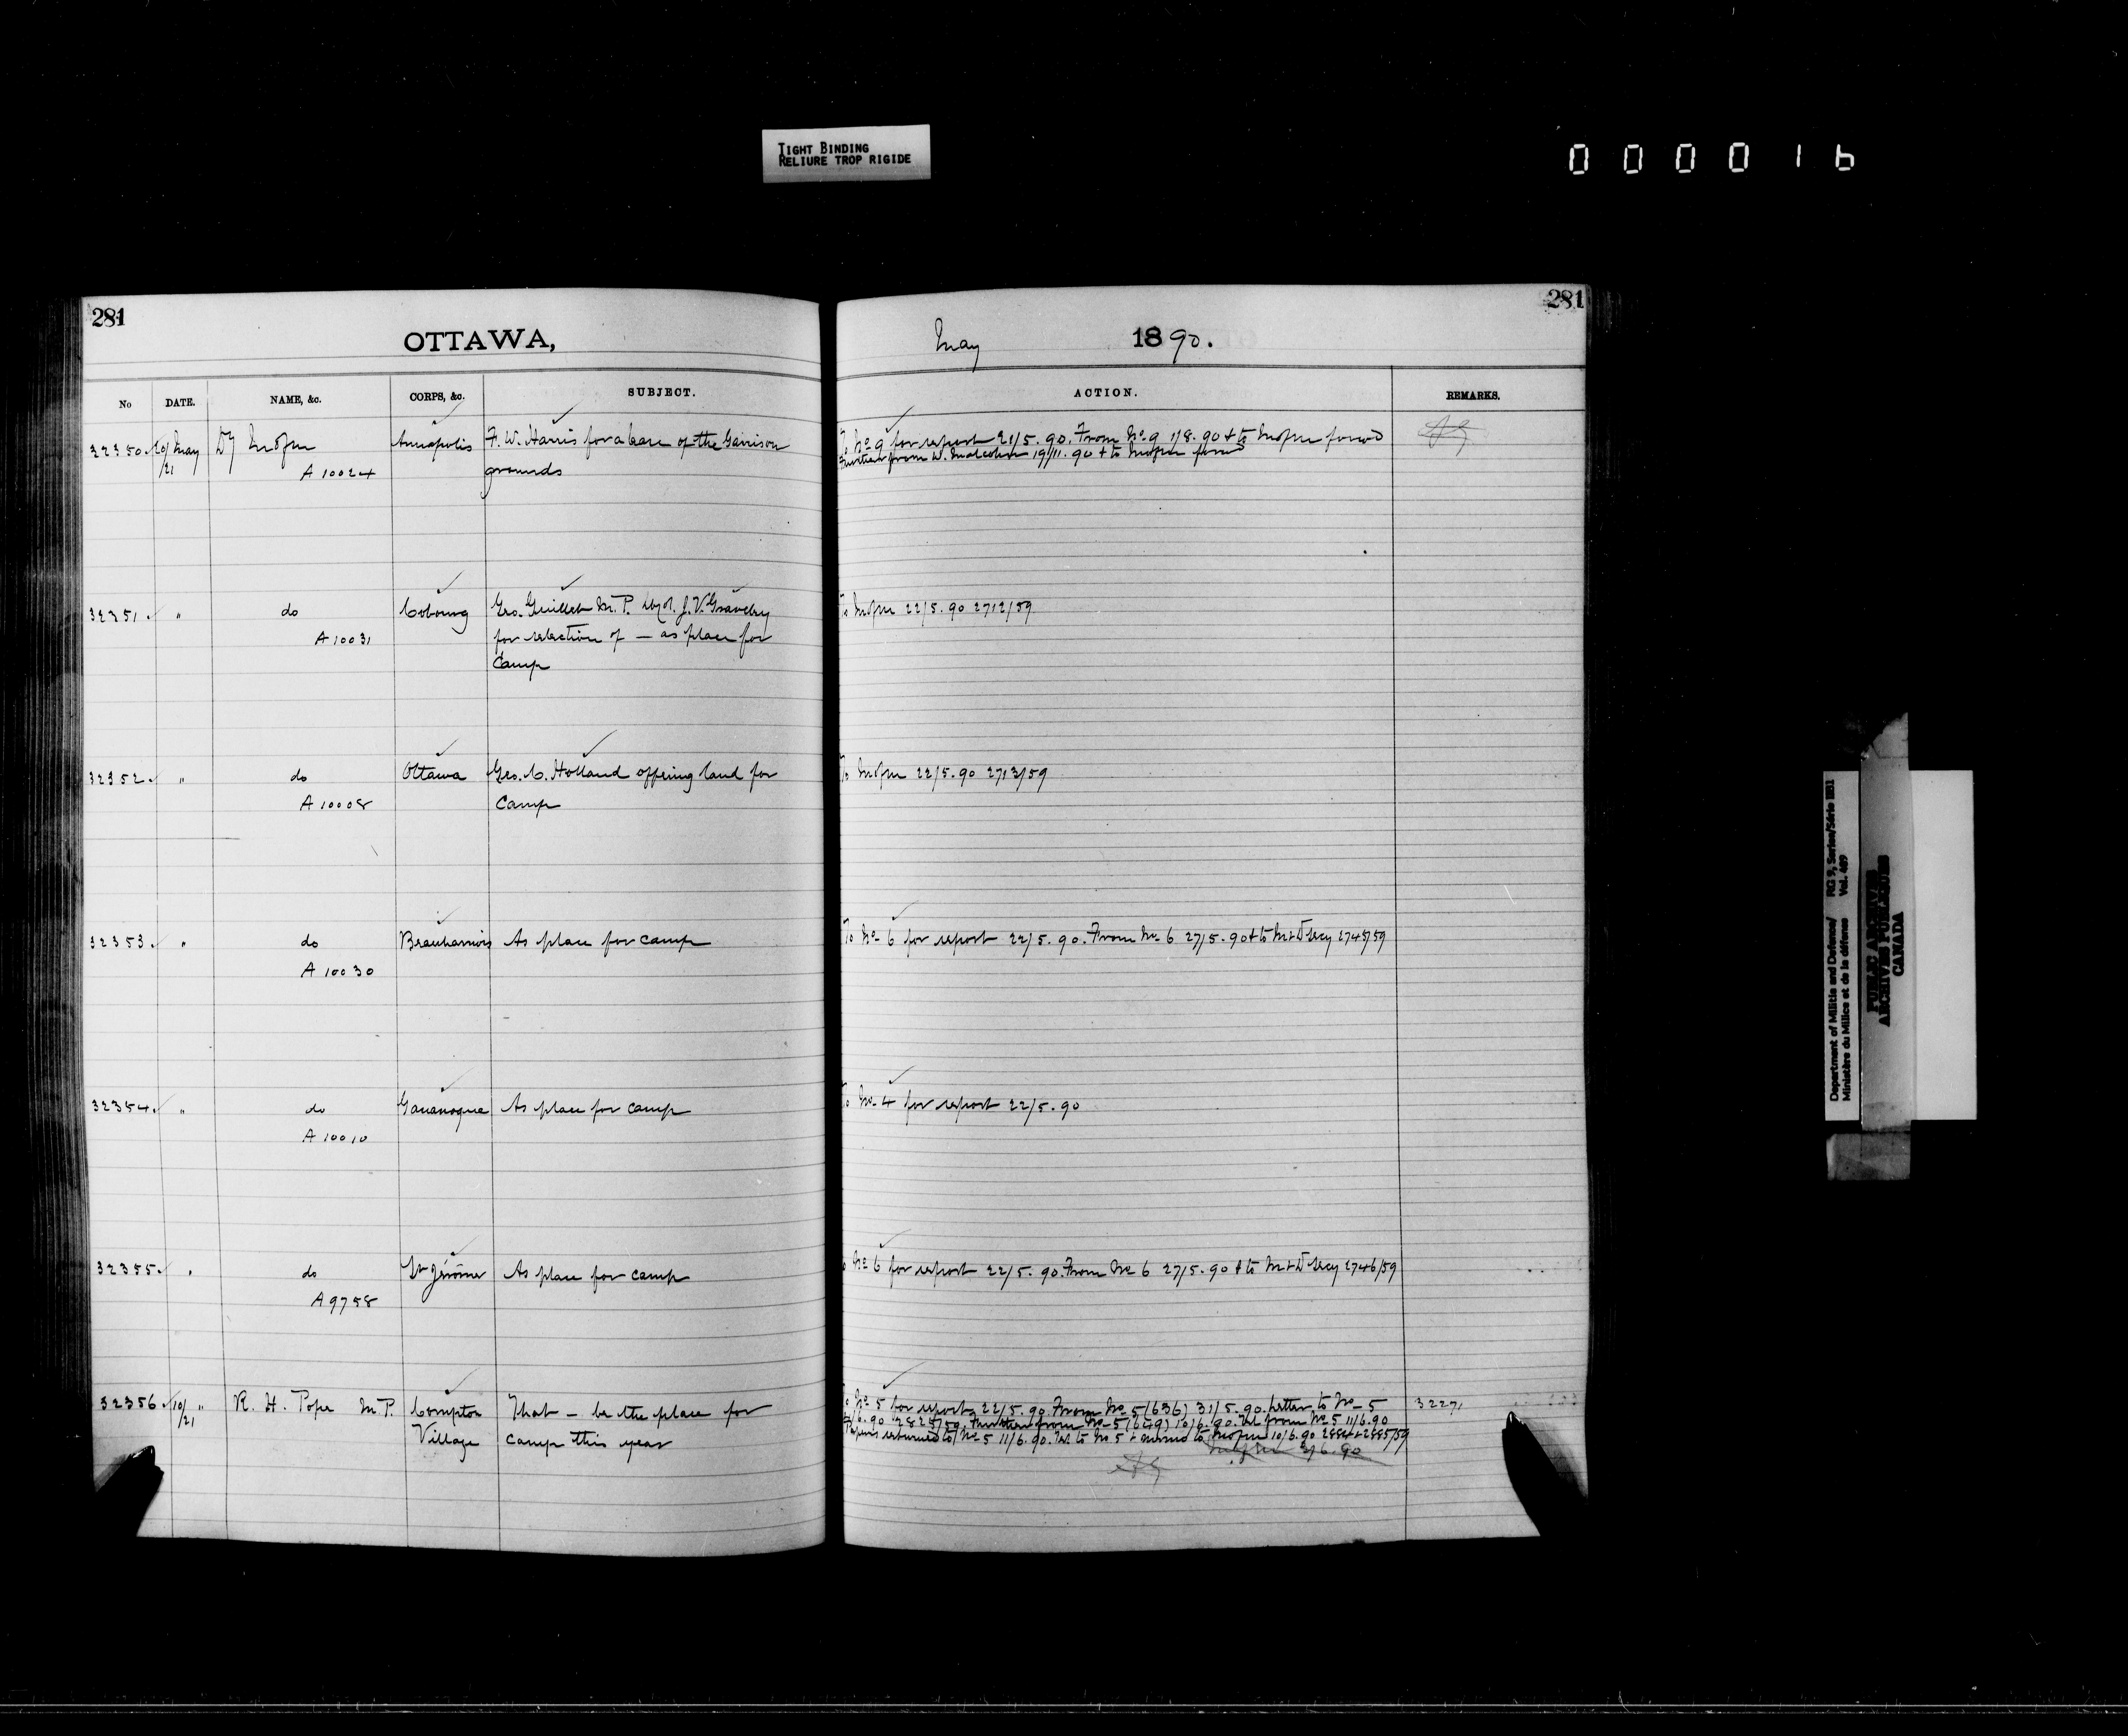 TIGHT BINDING
RELIURE TROP RIGIDE
0 0 0 0 1 6
281
OTTAWA,
No DATE. NAME, &c. CORPS, &c. SUBJECT.
32350 20/21 May Dy A 10024 Annapolis F. W. Harris for a lease of the Garrison
grounds
32351 " do Cobourg Geo. Guillet M.P. J. V. Gravely
A 10031 for selection of — as place for
Camp
32352 " do Ottawa Geo. C. Holland offering land for
A 10008 Camp
32353 " do Beauharnois As place for camp
A 10030
32354 " do Gananoque As place for camp
A 10010
32355 " do St Jérôme As place for camp
A 9758
32356 10/21 " R. H. Pope M.P. Compton That — be the place for
Village camp this year
281
May 1890.
ACTION. REMARKS.
To No 9 for report 21/5.90. From No. 9 1/8.90 & to
Further from W. Malcolm 19/11.90 & to
To 22/5.90 2712/59
To 22/5.90 2713/59
To No 6 for report 22/5.90. From No 6 27/5.90 & to M & D Secy 2745/59
To No 4 for report 22/5.90
To No 6 for report 22/5.90. From No 6 27/5.90 & to M & D Secy 2746/59
To No 5 for report 22/5.90. From No 5 (636) 31/5.90. Letter to No 5 32271
2825/59. Further from No 5 (649) 10/6.90. Tel from No 5 11/6.90
Papers returned to No 5 11/6.90. Tel to No 5 + memo to 10/6.90 2884 + 2885/59
2/6.90
Department of Militia and Defence/ RG 9, Series/Série IIB1
Ministère du Milice et de la défense Vol. 469
PUBLIC ARCHIVES
ARCHIVES PUBLIQUES
CANADA